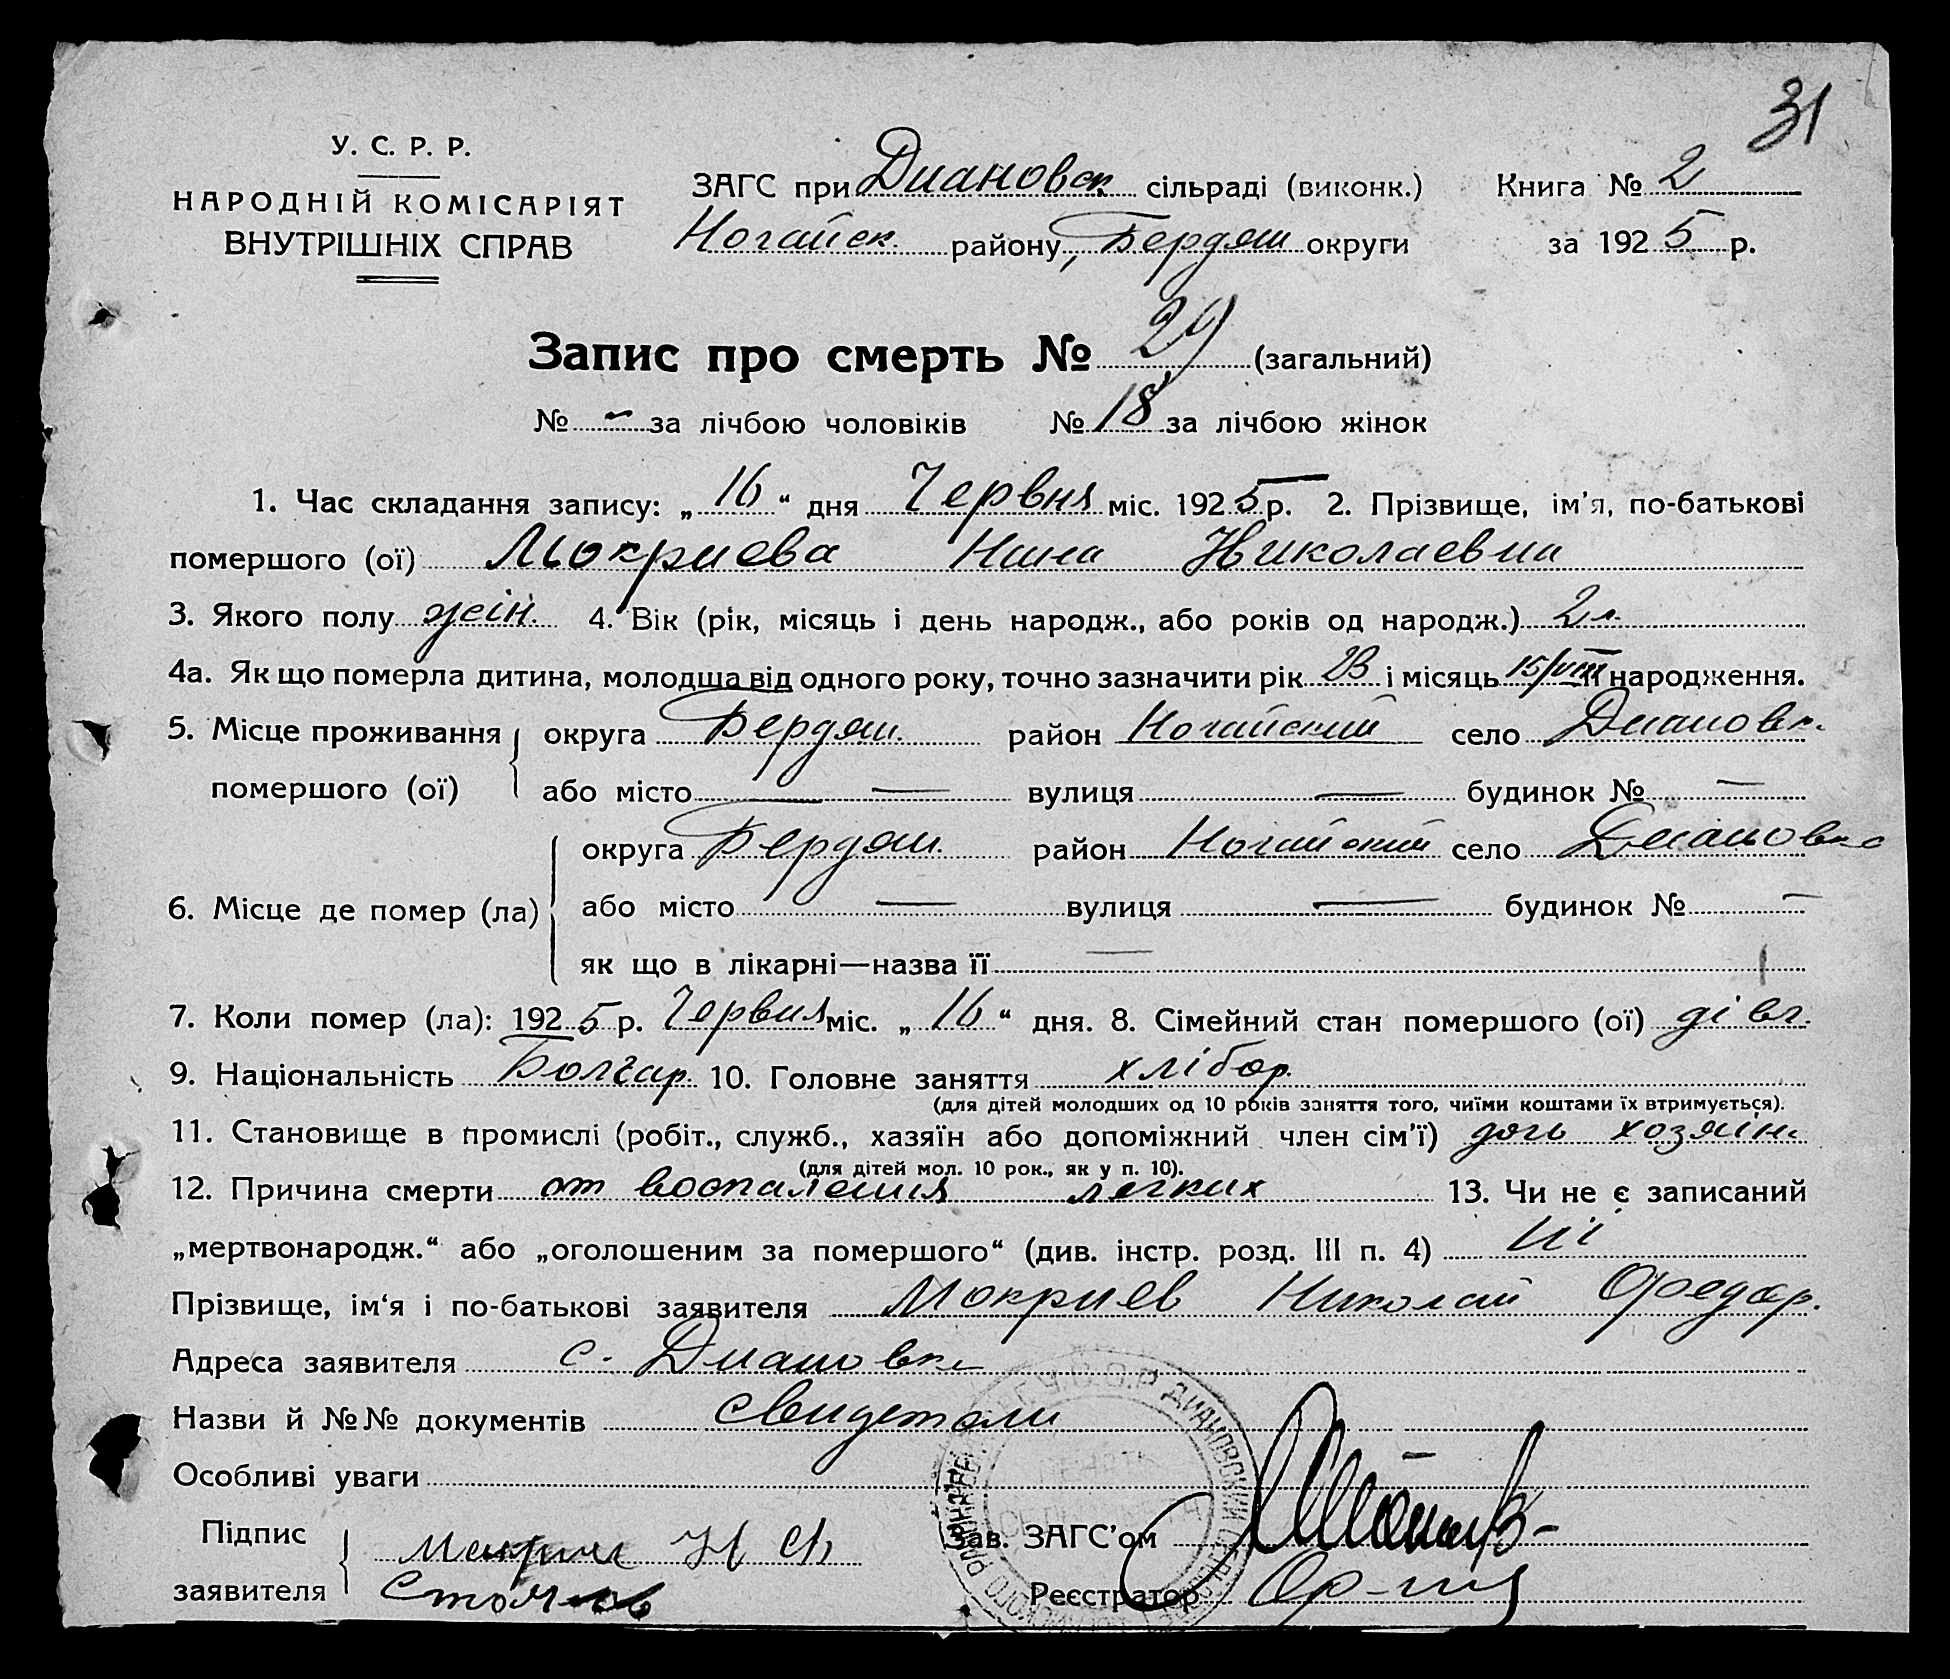 31
У. С. Р. Р.
НАРОДНІЙ КОМІСАРІЯТ
ВНУТРІШНІХ СПРАВ
ЗАГС при Диановск сільраді (виконк.) Книга № 2
Ногайск. району, Бердян округи за 1925 р.
Запис про смерть № 29 (загальний)
№ - за лічбою чоловіків № 18 за лічбою жінок
1. Час складання запису: „16“ дня Червня міс. 1925 р. 2. Прізвище, ім'я, по-батькові
помершого (ої) Мокриева Нина Николаевна
3. Якого полу жін. 4. Вік (рік, місяць і день народж., або років од народж.) 2 л.
4а. Як що померла дитина, молодша від одного року, точно зазначити рік 23 і місяць 15/VIII народження.
5. Місце проживання округа Бердян. район Ногайский село Диановк.
помершого (ої) або місто — — вулиця — будинок № —
округа Бердян. район Ногайский село Диановка
6. Місце де помер (ла) або місто — вулиця — будинок № —
як що в лікарні—назва її —
7. Коли помер (ла): 1925 р. Червня міс. „16“ дня. 8. Сімейний стан помершого (ої) дівч.
9. Національність Болгар. 10. Головне заняття хлібор.
(для дітей молодших од 10 років заняття того, чиїми коштами їх втримується).
11. Становище в промислі (робіт., служб., хазяїн або допоміжний член сім'ї) дочь хозяина
(для дітей мол. 10 рок., як у п. 10).
12. Причина смерти от воспаления легких 13. Чи не є записаний
„мертвонародж.“ або „оголошеним за помершого“ (див. інстр. розд. III п. 4) ні
Прізвище, ім'я і по-батькові заявителя Мокриев Николай Федор.
Адреса заявителя с. Диановка
Назви й №№ документів свидетели
Особливі уваги
Підпис Н Ф Зав. ЗАГС'ом
заявителя Стоянов Реєстратор